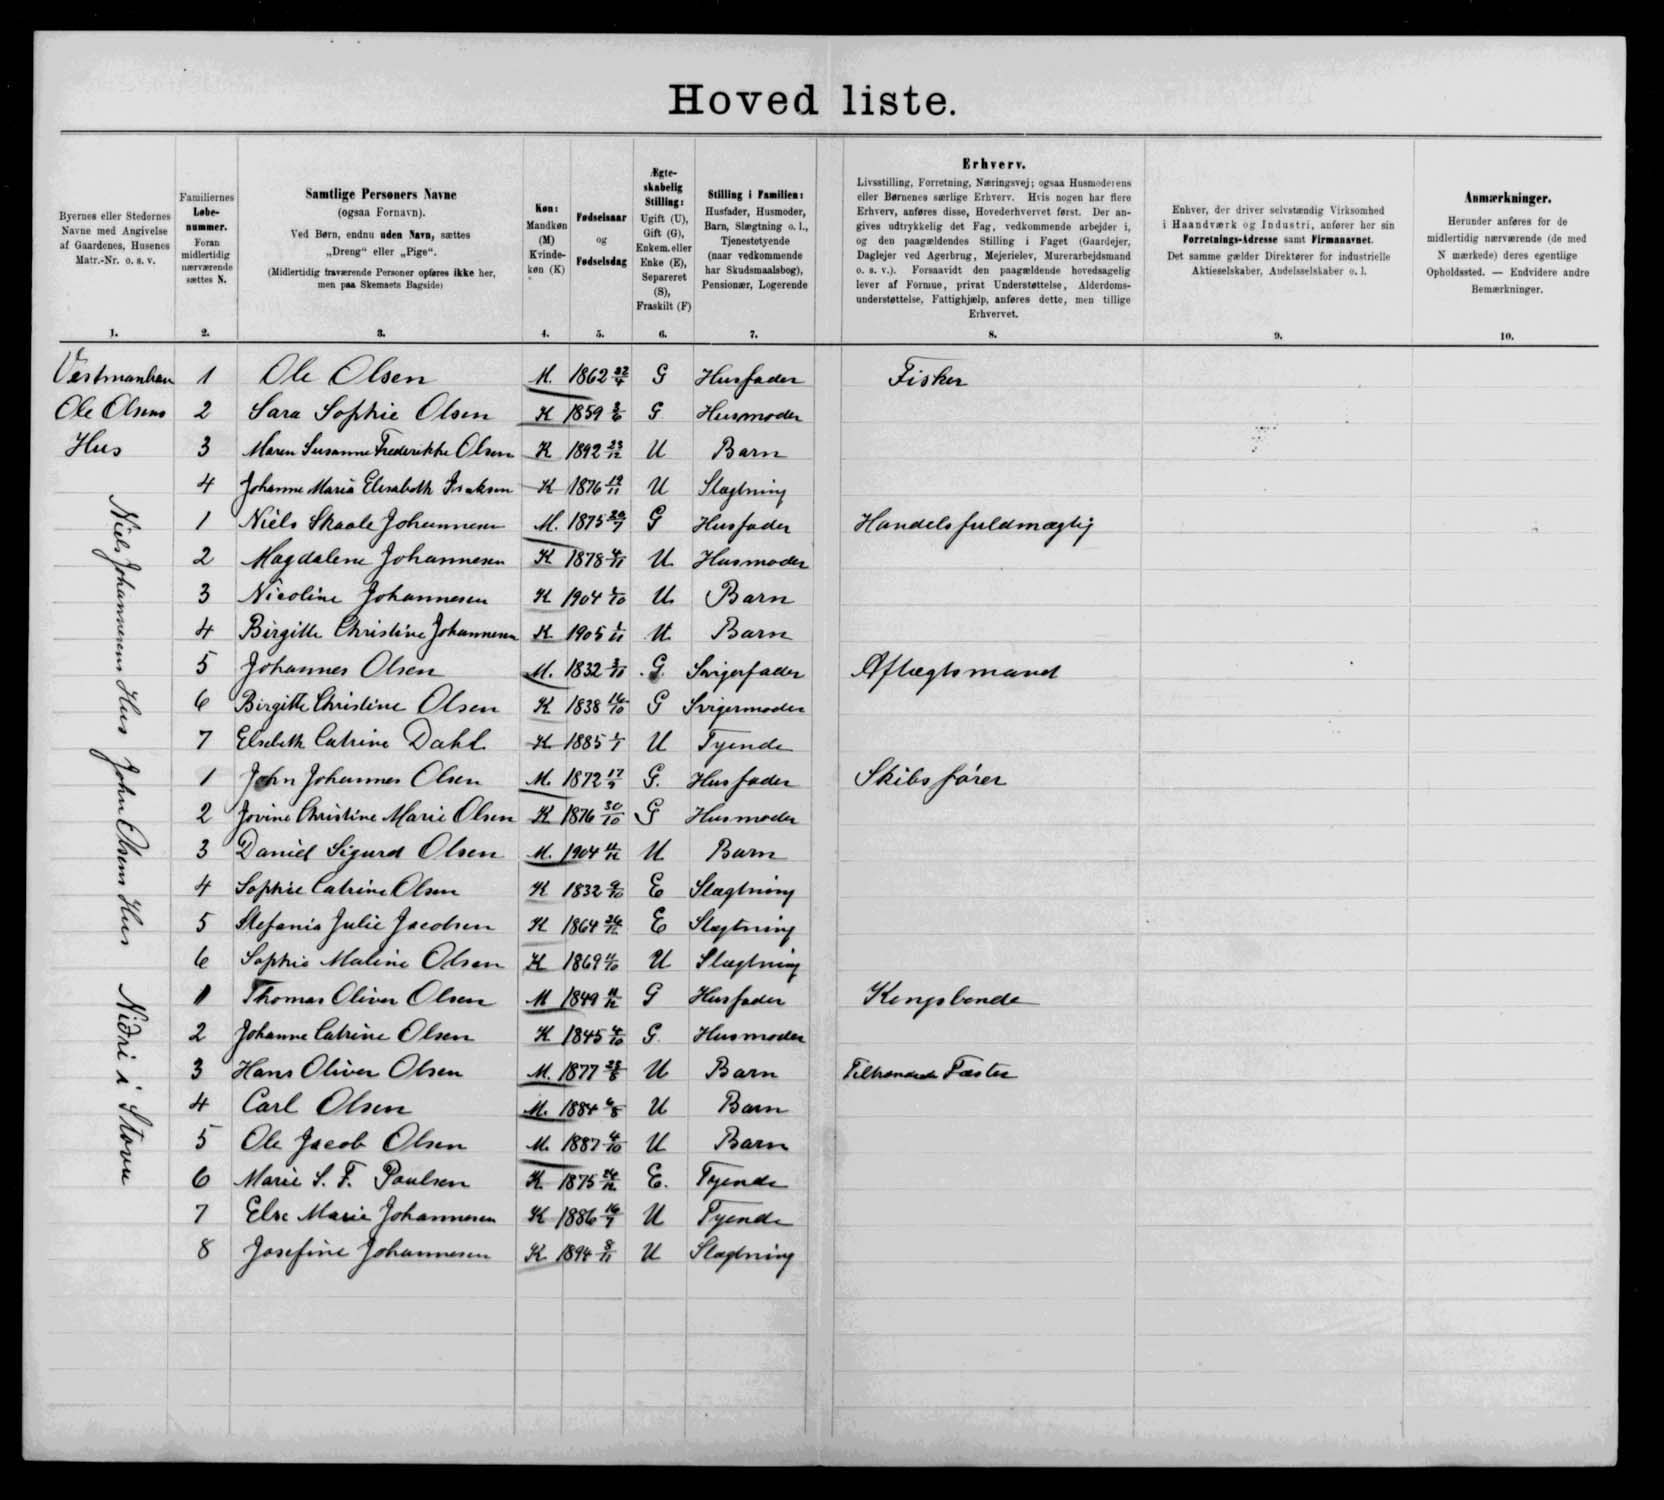 Hoved liste.
Byernes eller Stedernes
Navne med Angivelse
af Gaardenes, Husenes
Matr.-Nr. o. s. v.
1.
Familiernes
Løbe-
nummer.
Foran
midlertidig
nærværende
sættes N.
2.
Samtlige Personers Navne
(ogsaa Fornavn).
Ved Børn, endnu uden Navn, sættes
„Dreng“ eller „Pige“.
(Midlertidig fraværende Personer opføres ikke her,
men paa Skemaets Bagside)
3.
Køn:
Mandkøn
(M)
Kvinde-
køn (K)
4.
Fødselsaar
og
Fødselsdag
5.
Ægte-
skabelig
Stilling:
Ugift (U),
Gift (G),
Enkem. eller
Enke (E),
Separeret
(S),
Fraskilt (F)
6.
Stilling i Familien:
Husfader, Husmoder,
Barn, Slægtning o. l.,
Tjenestetyende
(naar vedkommende
har Skudsmaalsbog),
Pensionær, Logerende
7.
Erhverv.
Livsstilling, Forretning, Næringsvej; ogsaa Husmoderens
eller Børnenes særlige Erhverv. Hvis nogen har flere
Erhverv, anføres disse, Hovederhvervet først. Der an-
gives udtrykkelig det Fag, vedkommende arbejder i,
og den paagældendes Stilling i Faget (Gaardejer,
Daglejer ved Agerbrug, Mejerielev, Murerarbejdsmand
o. s. v.). Forsaavidt den paagældende hovedsagelig
lever af Formue, privat Understøttelse, Alderdoms-
understøttelse, Fattighjælp, anføres dette, men tillige
Erhvervet.
8.
Enhver, der driver selvstændig Virksomhed
i Haandværk og Industri, anfører her sin
Forretnings-Adresse samt Firmanavnet.
Det samme gælder Direktører for industrielle
Aktieselskaber, Andelsselskaber o. l.
9.
Anmærkninger.
Herunder anføres for de
midlertidig nærværende (de med
N mærkede) deres egentlige
Opholdssted. — Endvidere andre
Bemærkninger.
10.
Vestmanhavn 1 Ole Olsen M. 1862 22/4 G Husfader Fisker
Ole Olsens 2 Sara Sophie Olsen K 1859 G Husmoder
Hus 3 Maren Susanne Frederikke Olsen K 1892 23/12 U Barn
4 Johanne Maria Elisabeth Isaksen K 1876 19/11 U Slægtning
Niels Johannesens Hus
1 Niels Skaale Johannesen M. 1875 20/7 G Husfader Handelsfuldmægtig
2 Magdalene Johannesen K 1878 4/11 U. Husmoder
3 Nicoline Johannesen K 1904 U. Barn
4 Birgitte Christine Johannesen K. 1905 U. Barn
5 Johannes Olsen M. 1832 G. Svigerfader Aftægtsmand
6 Birgitte Christine Olsen K 1838 16/10 G Svigermoder
7 Elsebeth Catrine Dahl K 1885 U Tyende
John Olsens Hus
1 John Johannes Olsen M. 1872 G. Husfader Skibsfører
2 Jovine Christine Marie Olsen K 1876 30/10 G Husmoder
3 Daniel Sigurd Olsen M. 1904 U Barn
4 Sophie Catrine Olsen K 1832 9/10 E Slægtning
5 Stefania Julie Jacobsen K 1864 E Slægtning
6 Sophie Maline Olsen K 1869 U Slægtning
Niðri i Stovu
1 Thomas Oliver Olsen M 1849 G Husfader Kongsbonde
2 Johanne Catrine Olsen K 1845 4/10 G. Husmoder
3 Hans Oliver Olsen M. 1877 U Barn Tiltrædende Fæster
4 Carl Olsen M. 1884 U Barn
5 Ole Jacob Olsen M. 1887 U Barn
6 Marie S. F. Poulsen K. 1875 E. Tyende
7 Else Marie Johannesen K 1886 16/7 U Tyende
8 Josefine Johannesen K 1894 8/11 U Slægtning